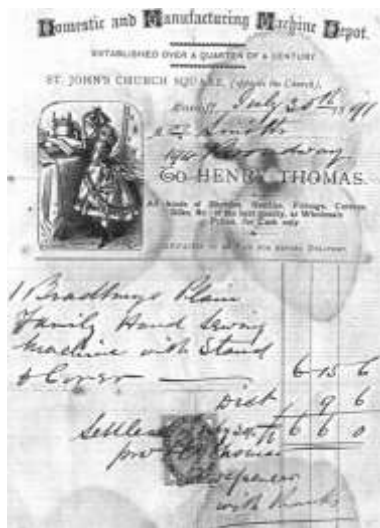 Domestic and Manufacturing Machine Depot.
ESTABLISHED OVER A QUARTER OF A CENTURY
ST. JOHN'S CHURCH SQUARE, (opposite the Church),
Cardiff, July 24th 1891
Mr Smith
194 Broadway
To HENRY THOMAS.
All kinds of Machine Needles, Fittings, Cottons,
Silks, &c. of the best quality, at Wholesale
Prices, for Cash only
1 Bradburys Plain
Family Hand Sewing
Machine with Stand
& Cover 6 15 6
Dist 9 6
Settled 6 6 0
pro Thomas
with thanks